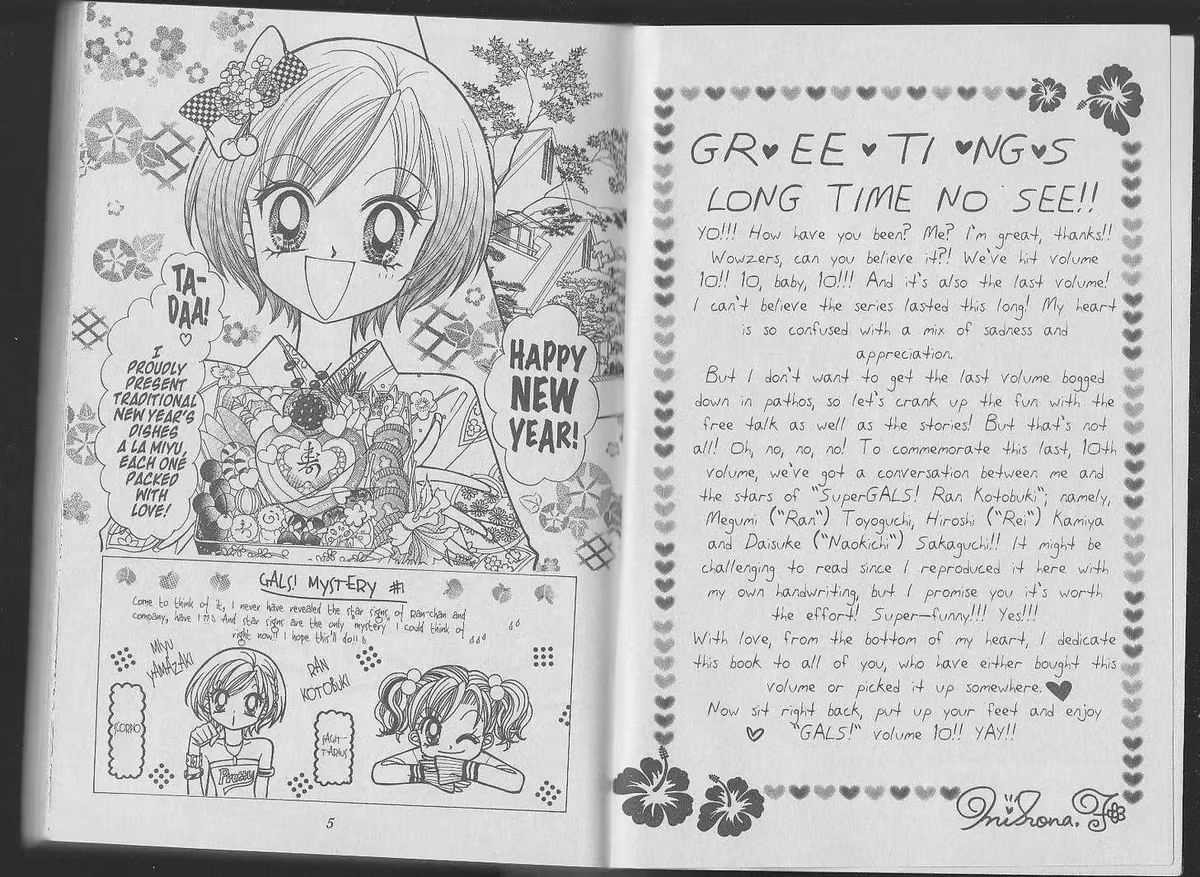 TA-
DAA!
I
PROUDLY
PRESENT
TRADITIONAL
NEW YEAR'S
DISHES
A LA MIYU,
EACH ONE
PACKED
WITH
LOVE!
HAPPY
NEW
YEAR!
寿
GALS! MYSTERY #1
Come to think of it, I never have revealed the star signs of Ran-chan and
company, have I?? And star signs are the only "mystery" I could think of
right now!! I hope this'll do!!
MIYU
YAMAZAKI
SCORPIO
Pretty
RAN
KOTOBUKI
SAGIT-
TARIUS
5
GR♥EE♥TI♥NG♥S
LONG TIME NO SEE!!
YO!!! How have you been? Me? I'm great, thanks!!
Wowzers, can you believe it?! We've hit volume
10!! 10, baby, 10!!! And it's also the last volume!
I can't believe the series lasted this long! My heart
is so confused with a mix of sadness and
appreciation.
But I don't want to get the last volume bogged
down in pathos, so let's crank up the fun with the
free talk as well as the stories! But that's not
all! Oh, no, no, no! To commemorate this last, 10th
volume, we've got a conversation between me and
the stars of "SuperGALS! Ran Kotobuki"; namely,
Megumi ("Ran") Toyoguchi, Hiroshi ("Rei") Kamiya
and Daisuke ("Naokichi") Sakaguchi!! It might be
challenging to read since I reproduced it here with
my own handwriting, but I promise you it's worth
the effort! Super-funny!!! Yes!!!
With love, from the bottom of my heart, I dedicate
this book to all of you, who have either bought this
volume or picked it up somewhere.♥
Now sit right back, put up your feet and enjoy
♡ "GALS!" volume 10!! YAY!!
Mihona. F